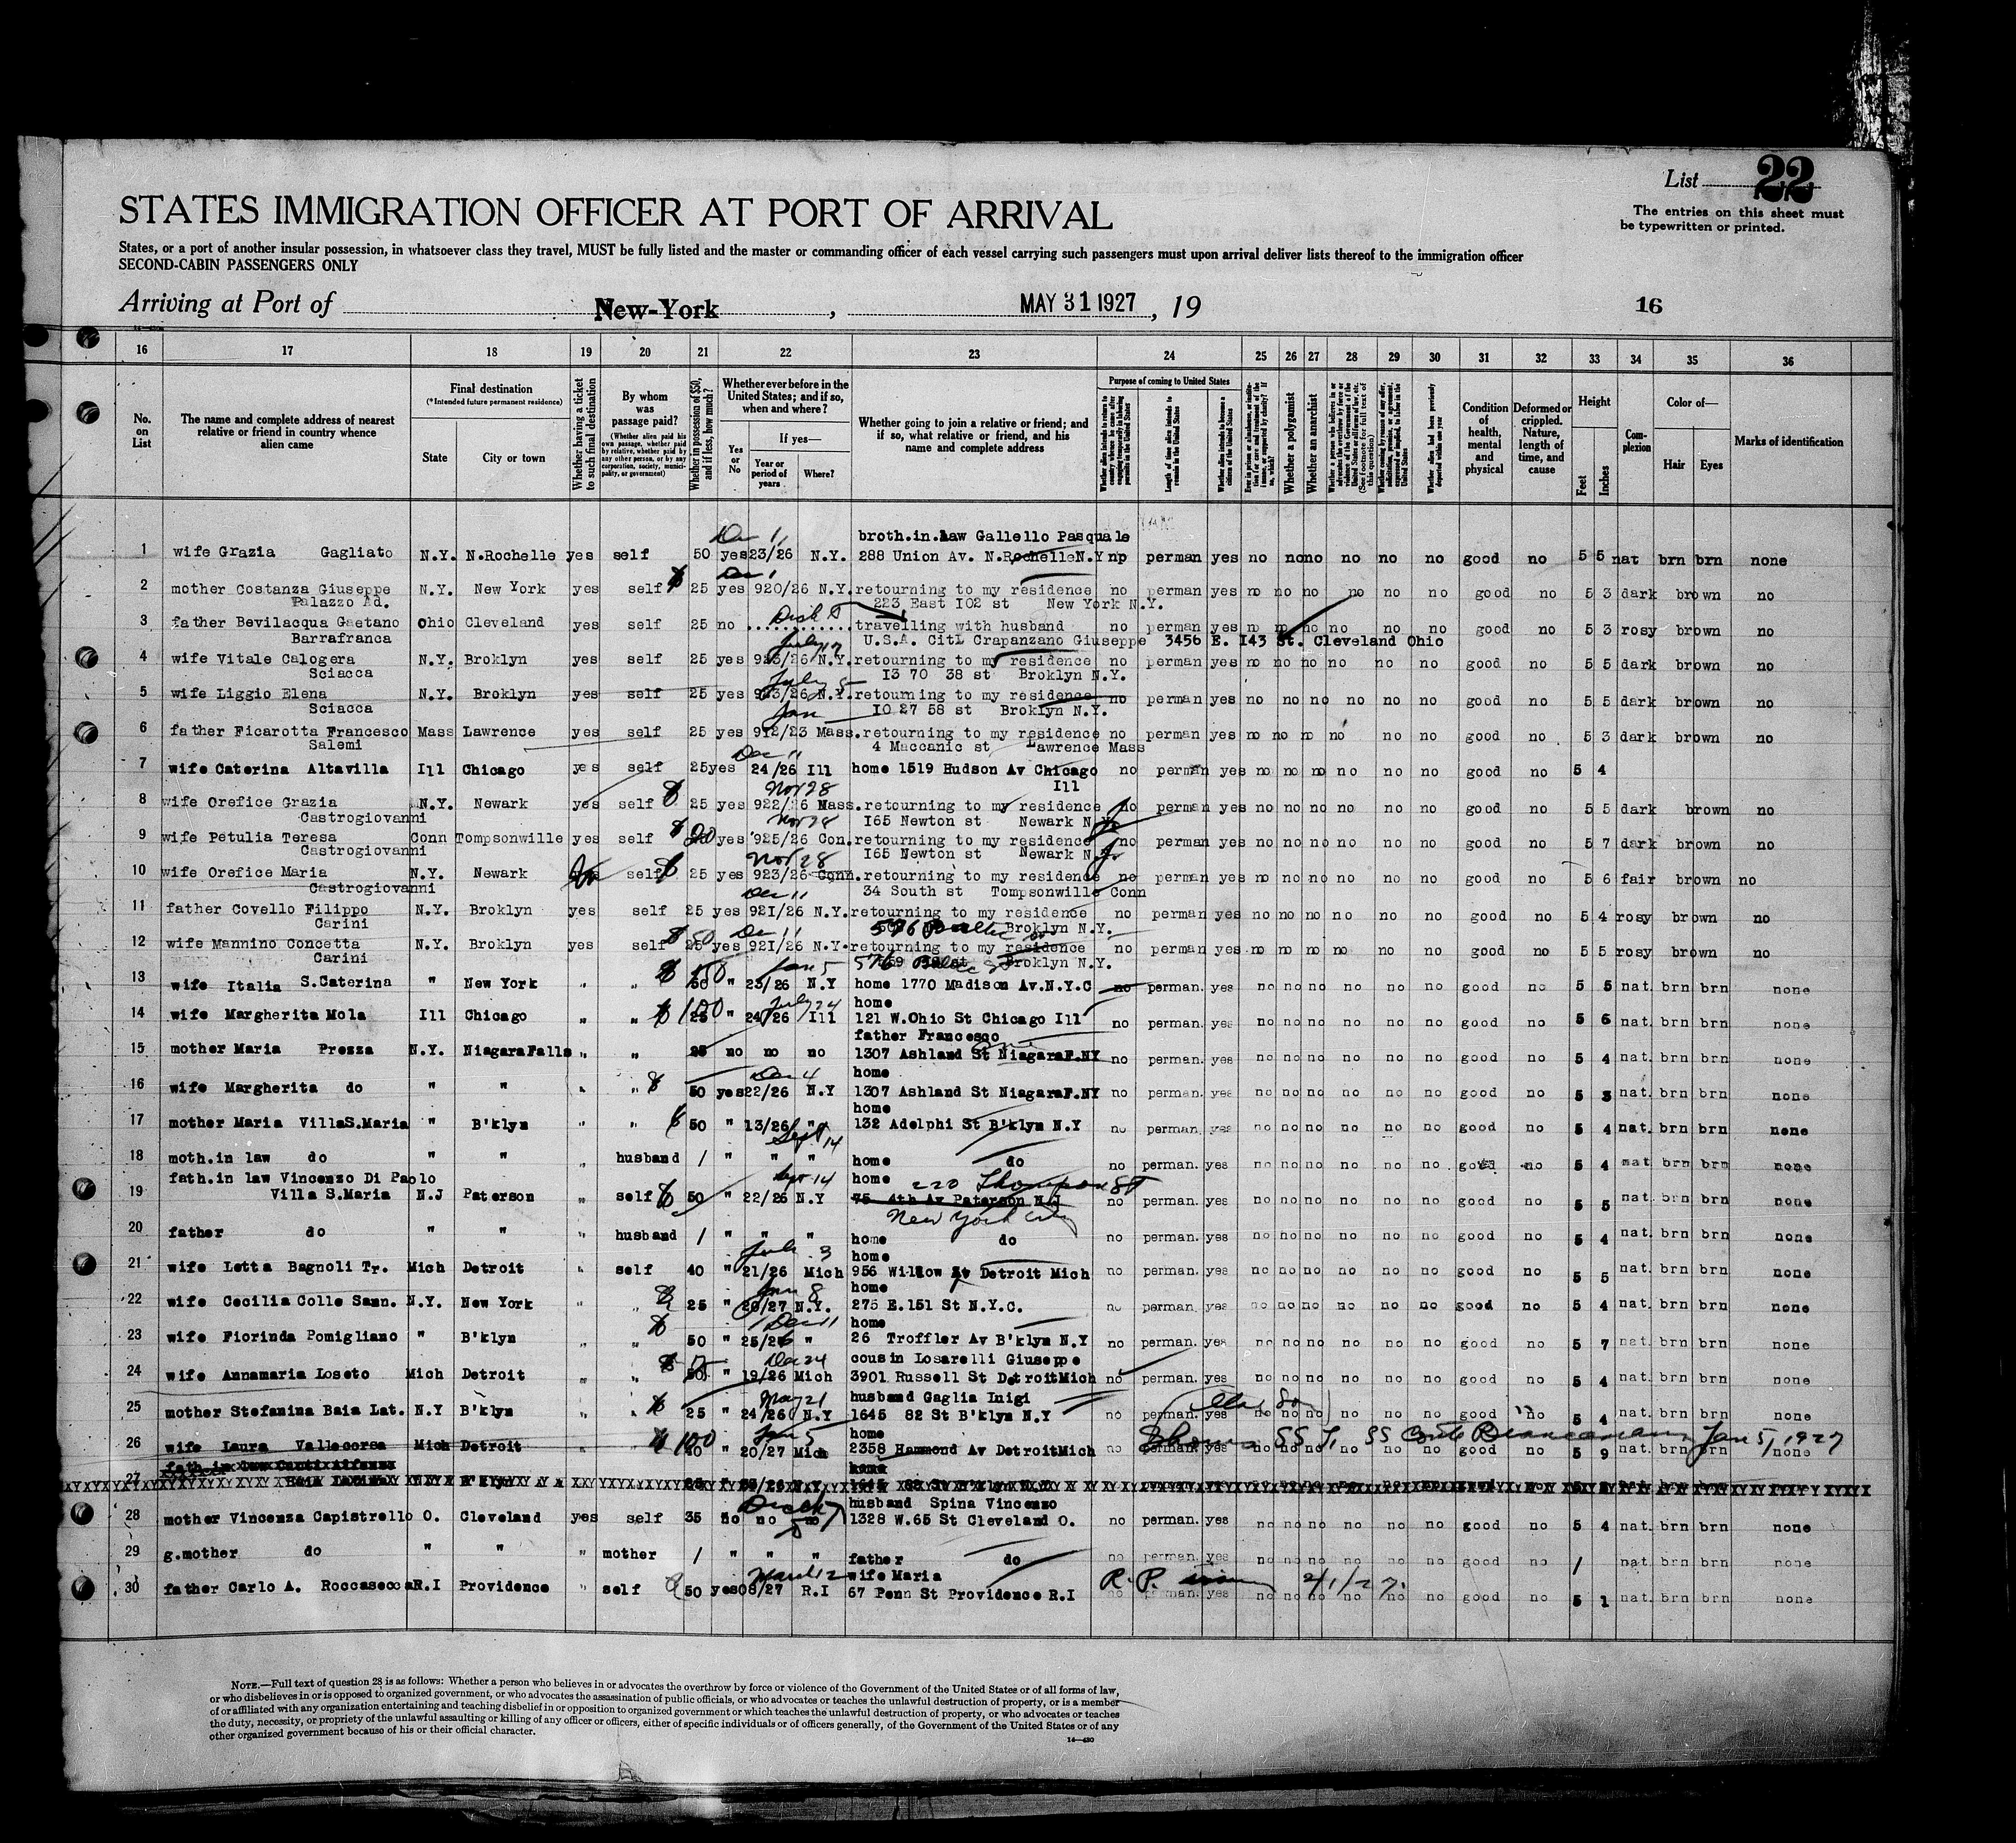 List 22
The entries on this sheet must
be typewritten or printed.
STATES IMMIGRATION OFFICER AT PORT OF ARRIVAL
States, or a port of another insular possession, in whatsoever class they travel, MUST be fully listed and the master or commanding officer of each vessel carrying such passengers must upon arrival deliver lists thereof to the immigration officer
SECOND-CABIN PASSENGERS ONLY
Arriving at Port of New-York, MAY 31 1927, 19 16
16 17 18 19 20 21 22 23 24 25 26 27 28 29 30 31 32 33 34 35 36
No. on List
The name and complete address of nearest relative or friend in country whence alien came
Final destination
(*Intended future permanent residence)
State
City or town
Whether having a ticket to such final destination
By whom was passage paid?
(Whether alien paid his own passage, whether paid by relative, whether paid by any other person, or by any corporation, society, municipality, or government)
Whether in possession of $50, and if less, how much?
Whether ever before in the United States; and if so, when and where?
Yes or No
If yes—
Year or period of years
Where?
Whether going to join a relative or friend; and if so, what relative or friend, and his name and complete address
Purpose of coming to United States
Length of time alien intends to remain in the United States
Whether alien intends to become a citizen of the United States
Whether a polygamist
Whether an anarchist
Condition of health, mental and physical
Deformed or crippled. Nature, length of time, and cause
Height
Feet
Inches
Complexion
Color of—
Hair
Eyes
Marks of identification
broth.in.Law Gallello Pasquale
1 wife Grazia Gagliato N.Y. N.Rochelle yes self 50 yes 23/26 N.Y. 288 Union Av. N.Rochelle N.Y no perman yes no no no no no no good 5 5 nat brn brn none
2 mother Costanza Giuseppe N.Y. New York yes self 25 yes 920/26 N.Y. retourning to my residence no perman yes no no no no no no good no 5 3 dark brown no
Palazzo Ad. 223 East I02 st New York N.Y.
3 father Bevilacqua Gaetano Ohio Cleveland yes self 25 no travelling with husband no perman yes no no no no no no good no 5 3 rosy brown no
Barrafranca U.S.A. Crapanzano Giuseppe 3456 E. I43 St. Cleveland Ohio
4 wife Vitale Calogera N.Y. Broklyn yes self 25 yes N.Y. retourning to my residence no perman yes no no no no no no good no 5 5 dark brown no
Sciacca I3 70 38 st Broklyn N.Y.
5 wife Liggio Elena N.Y. Broklyn yes self 25 yes N.Y. retourning to my residence no perman yes no no no no no no good no 5 5 dark brown no
Sciacca IO 27 58 st Broklyn N.Y.
6 father Ficarotta Francesco Mass Lawrence yes self 25 yes 912/23 Mass. retourning to my residence no perman yes no no no no no no good no 5 3 dark brown no
Salemi 4 Maccanic st Lawrence Mass
7 wife Caterina Altavilla Ill Chicago yes self 25 yes 24/26 Ill home 1519 Hudson Av Chicago no perman yes no no no no no no good no 5 4
Nov 28 Ill
8 wife Orefice Grazia N.Y. Newark yes self 25 yes 922/26 Mass. retourning to my residence no perman yes no no no no no no good no 5 5 dark brown no
Castrogiovanni I65 Newton st Newark N.
9 wife Petulia Teresa Conn Tompsonville yes self yes 925/26 Con. retourning to my residence no perman yes no no no no no no good no 5 7 dark brown no
Castrogiovanni I65 Newton st Newark N.
Nov 28
10 wife Orefice Maria N.Y. Newark self 25 yes 923/26 Conn. retourning to my residence no perman yes no no no no no no good no 5 6 fair brown no
Castrogiovanni 34 South st Tompsonville Conn
11 father Covello Filippo N.Y. Broklyn yes self 25 yes 92I/26 N.Y. retourning to my residence no perman yes no no no no no no good no 5 4 rosy brown no
Carini Broklyn N.Y.
12 wife Mannino Concetta N.Y. Broklyn yes self yes 92I/26 N.Y. retourning to my residence no perman yes no no no no no no good no 5 5 rosy brown no
Carini 576 Broklyn N.Y.
13 wife Italia S.Caterina " New York " " 50 " 23/26 N.Y home 1770 Madison Av.N.Y.C no perman. yes no no no no no no good no 5 5 nat. brn brn none
July 24 home
14 wife Margherita Mola Ill Chicago " " 25 " 24/26 Ill 121 W.Ohio St Chicago Ill no perman. yes no no no no no no good no 5 6 nat. brn brn none
father Francesco
15 mother Maria Prezza N.Y. NiagaraFalls " " 25 no no no 1307 Ashland St NiagaraF.NY no perman. yes no no no no no no good no 5 4 nat. brn brn none
Dec 4 home
16 wife Margherita do " " " " 50 yes 22/26 N.Y 1307 Ashland St NiagaraF.NY no perman. yes no no no no no no good no 5 3 nat. brn brn none
home
17 mother Maria VillaS.Maria " B'klyn " " 50 " 13/26 " 132 Adelphi St B'klyn N.Y no perman. yes no no no no no no good no 5 4 nat. brn brn none
Sept 14
18 moth.in law do " " husband / " " " home do no perman. yes no no no no no no good no 5 4 nat brn brn none
fath.in law Vincenzo Di Paolo Sept 14 home 220 Thompson St
19 Villa S.Maria N.J Paterson " self 50 " 22/26 N.Y 75 4th Av Paterson N.J no perman. yes no no no no no no good no 5 5 nat. brn brn none
New York City
20 father do " " " husband / " " " home do no perman. yes no no no no no no good no 5 4 nat. brn brn none
home
21 wife Letta Bagnoli Tr. Mich Detroit " self 40 " 21/26 Mich 956 Willow Detroit Mich no perman. yes no no no no no no good no 5 5 nat. brn brn none
home
22 wife Cecilia Colle Sann. N.Y. New York " " 25 " 20/27 N.Y. 275 E.151 St N.Y.C. no perman. yes no no no no no no good no 5 4 nat. brn brn none
Dec 11 home
23 wife Fiorinda Pomigliano " B'klyn " " 50 " 25/26 " 26 Troffler Av B'klyn N.Y no perman. yes no no no no no no good no 5 7 nat. brn brn none
Dec 24 cousin Losarelli Giuseppe
24 wife Annamaria Loseto Mich Detroit " " 50 " 19/26 Mich 3901 Russell St DetroitMich no perman. yes no no no no no no good no 5 4 nat. brn brn none
May 21 husband Gaglia Inigi
25 mother Stefanina Baia Lat. N.Y B'klyn " " 25 " 24/26 N.Y 1645 82 St B'klyn N.Y no perman. yes no no no no no no good no 5 4 nat. brn brn none
home
26 wife Laura Vallecorsa Mich Detroit 100 " 20/27 Mich 2358 Hammond Av DetroitMich no SS Conte Biancamano Jan 5, 1927 good no 5 9 nat. brn brn none
27
husband Spina Vincenzo
28 mother Vincenza Capistrello O. Cleveland yes self 35 no no no 1328 W.65 St Cleveland O. no perman. yes no no no no no no good no 5 4 nat. brn brn none
29 g.mother do " " " mother / " " " father do no perman. yes no no no no no no good no / nat. brn brn none
March 12 wife Maria R.P. 2/1/27.
30 father Carlo A. Roccasecca R.I Providence " self 50 yes 08/27 R.I 67 Penn St Providence R.I no perman. yes no no no no no no good no 5 1 nat. brn brn none
NOTE.—Full text of question 28 is as follows: Whether a person who believes in or advocates the overthrow by force or violence of the Government of the United States or of all forms of law,
or who disbelieves in or is opposed to organized government, or who advocates the assassination of public officials, or who advocates or teaches the unlawful destruction of property, or is a member
of or affiliated with any organization entertaining and teaching disbelief in or opposition to organized government or which teaches the unlawful destruction of property, or who advocates or teaches
the duty, necessity, or propriety of the unlawful assaulting or killing of any officer or officers, either of specific individuals or of officers generally, of the Government of the United States or of any
other organized government because of his or their official character.
14—430